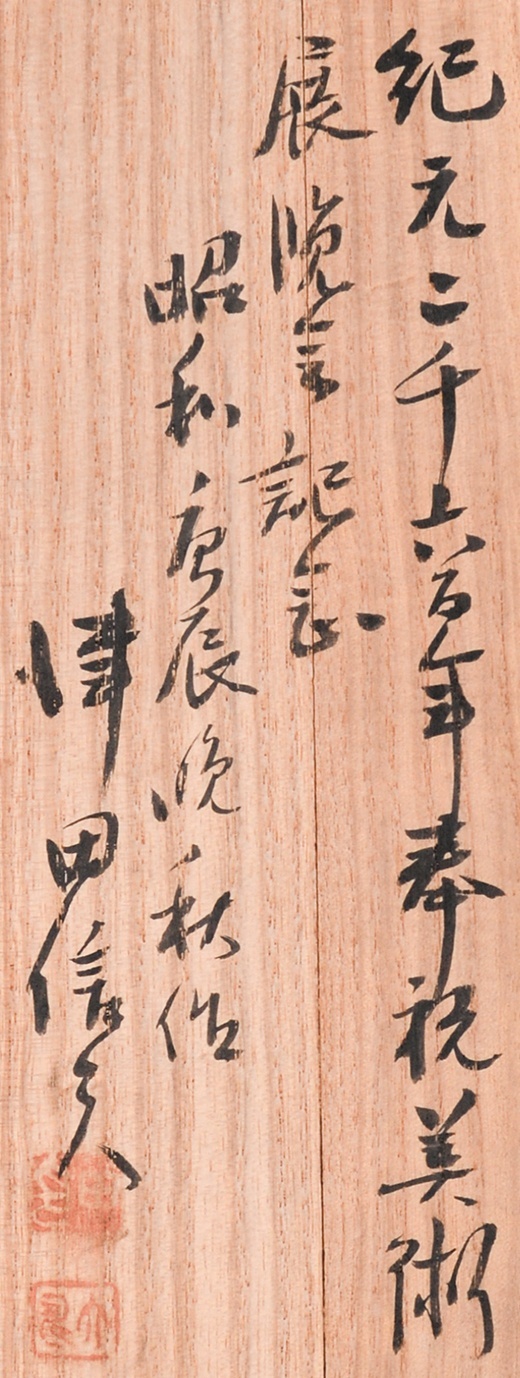 紀元二千六百年奉祝美術
展覧会記念
昭和庚辰晩秋作
津田信夫